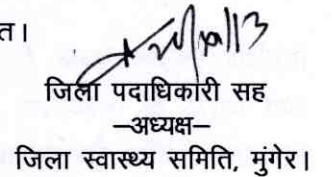 त।
जिला पदाधिकारी सह
–अध्यक्ष–
जिला स्वास्थ्य समिति, मुंगेर।